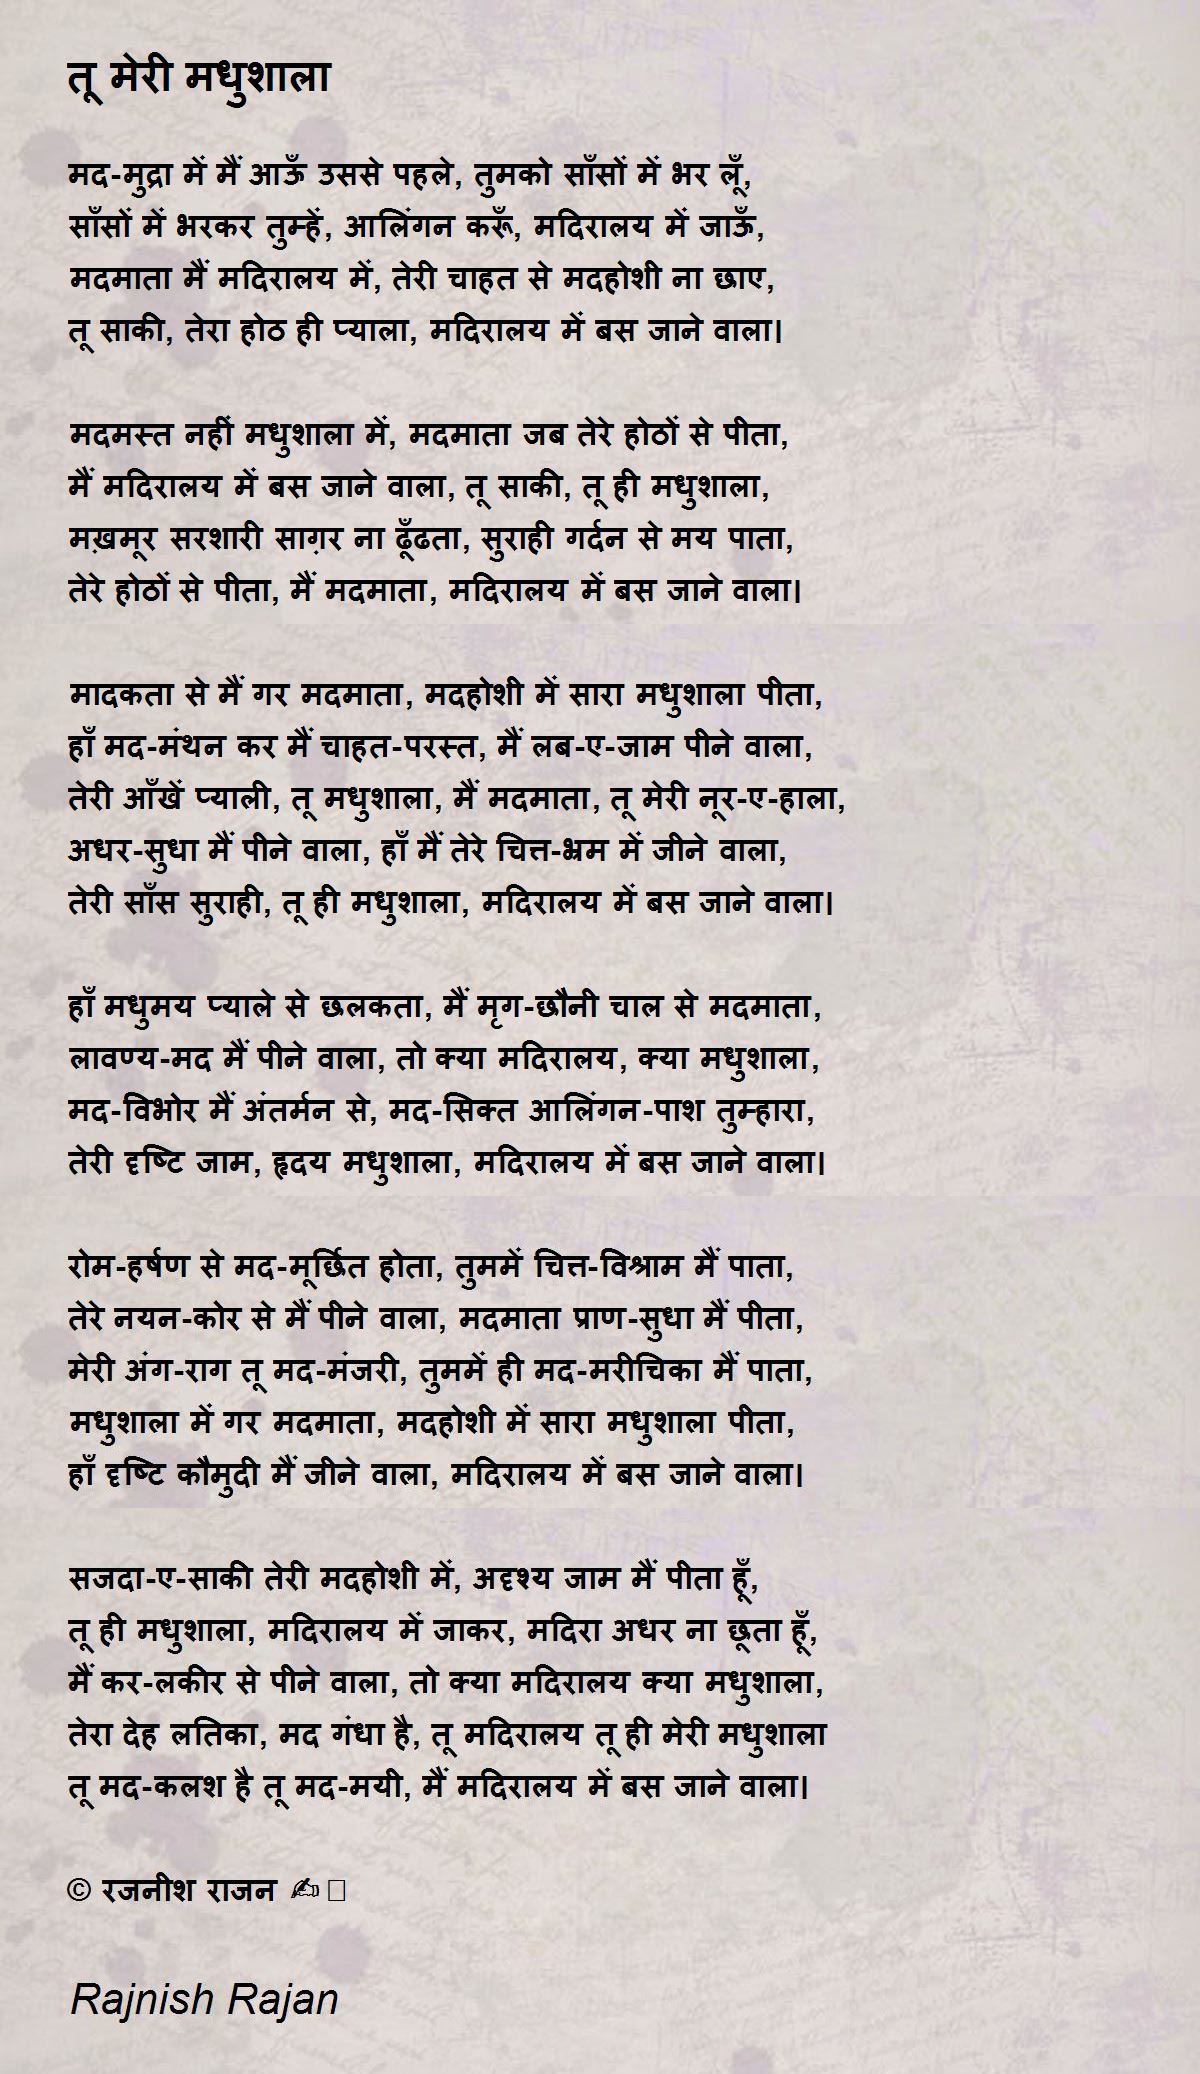 तू मेरी मधुशाला
मद-मुद्रा में मैं आऊँ उससे पहले, तुमको साँसों में भर लूँ,
साँसों में भरकर तुम्हें, आलिंगन करूँ, मदिरालय में जाऊँ,
मदमाता मैं मदिरालय में, तेरी चाहत से मदहोशी ना छाए,
तू साकी, तेरा होठ ही प्याला, मदिरालय में बस जाने वाला।
मदमस्त नहीं मधुशाला में, मदमाता जब तेरे होठों से पीता,
मैं मदिरालय में बस जाने वाला, तू साकी, तू ही मधुशाला,
मख़मूर सरशारी साग़र ना ढूँढता, सुराही गर्दन से मय पाता,
तेरे होठों से पीता, मैं मदमाता, मदिरालय में बस जाने वाला।
मादकता से मैं गर मदमाता, मदहोशी में सारा मधुशाला पीता,
हाँ मद-मंथन कर मैं चाहत-परस्त, मैं लब-ए-जाम पीने वाला,
तेरी आँखें प्याली, तू मधुशाला, मैं मदमाता, तू मेरी नूर-ए-हाला,
अधर-सुधा मैं पीने वाला, हाँ मैं तेरे चित्त-भ्रम में जीने वाला,
तेरी साँस सुराही, तू ही मधुशाला, मदिरालय में बस जाने वाला।
हाँ मधुमय प्याले से छलकता, मैं मृग-छौनी चाल से मदमाता,
लावण्य-मद मैं पीने वाला, तो क्या मदिरालय, क्या मधुशाला,
मद-विभोर मैं अंतर्मन से, मद-सिक्त आलिंगन-पाश तुम्हारा,
तेरी दृष्टि जाम, हृदय मधुशाला, मदिरालय में बस जाने वाला।
रोम-हर्षण से मद-मूर्छित होता, तुममें चित्त-विश्राम मैं पाता,
तेरे नयन-कोर से मैं पीने वाला, मदमाता प्राण-सुधा मैं पीता,
मेरी अंग-राग तू मद-मंजरी, तुममें ही मद-मरीचिका मैं पाता,
मधुशाला में गर मदमाता, मदहोशी में सारा मधुशाला पीता,
हाँ दृष्टि कौमुदी मैं जीने वाला, मदिरालय में बस जाने वाला।
सजदा-ए-साकी तेरी मदहोशी में, अदृश्य जाम मैं पीता हूँ,
तू ही मधुशाला, मदिरालय में जाकर, मदिरा अधर ना छूता हूँ,
मैं कर-लकीर से पीने वाला, तो क्या मदिरालय क्या मधुशाला,
तेरा देह लतिका, मद गंधा है, तू मदिरालय तू ही मेरी मधुशाला
तू मद-कलश है तू मद-मयी, मैं मदिरालय में बस जाने वाला।
© रजनीश राजन ✍
Rajnish Rajan